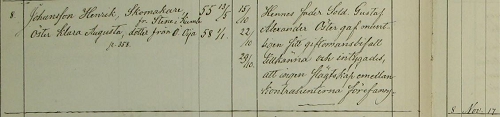 8. Johansson Henrik, Skomakare 55 12/3 15/10 Hennes fader Sold. Gustaf
fr. Sten i Kumla 22/10 Alexander Öster gaf munt-
Öster Klara Augusta, dotter från Ö. 58 1/1 ligen sitt giftomansbifall
p. 358. 29/10 tillkänna och intygades,
att ingen slägtskap emellan
kontrahenterna förefanns.
8 Nov. 17